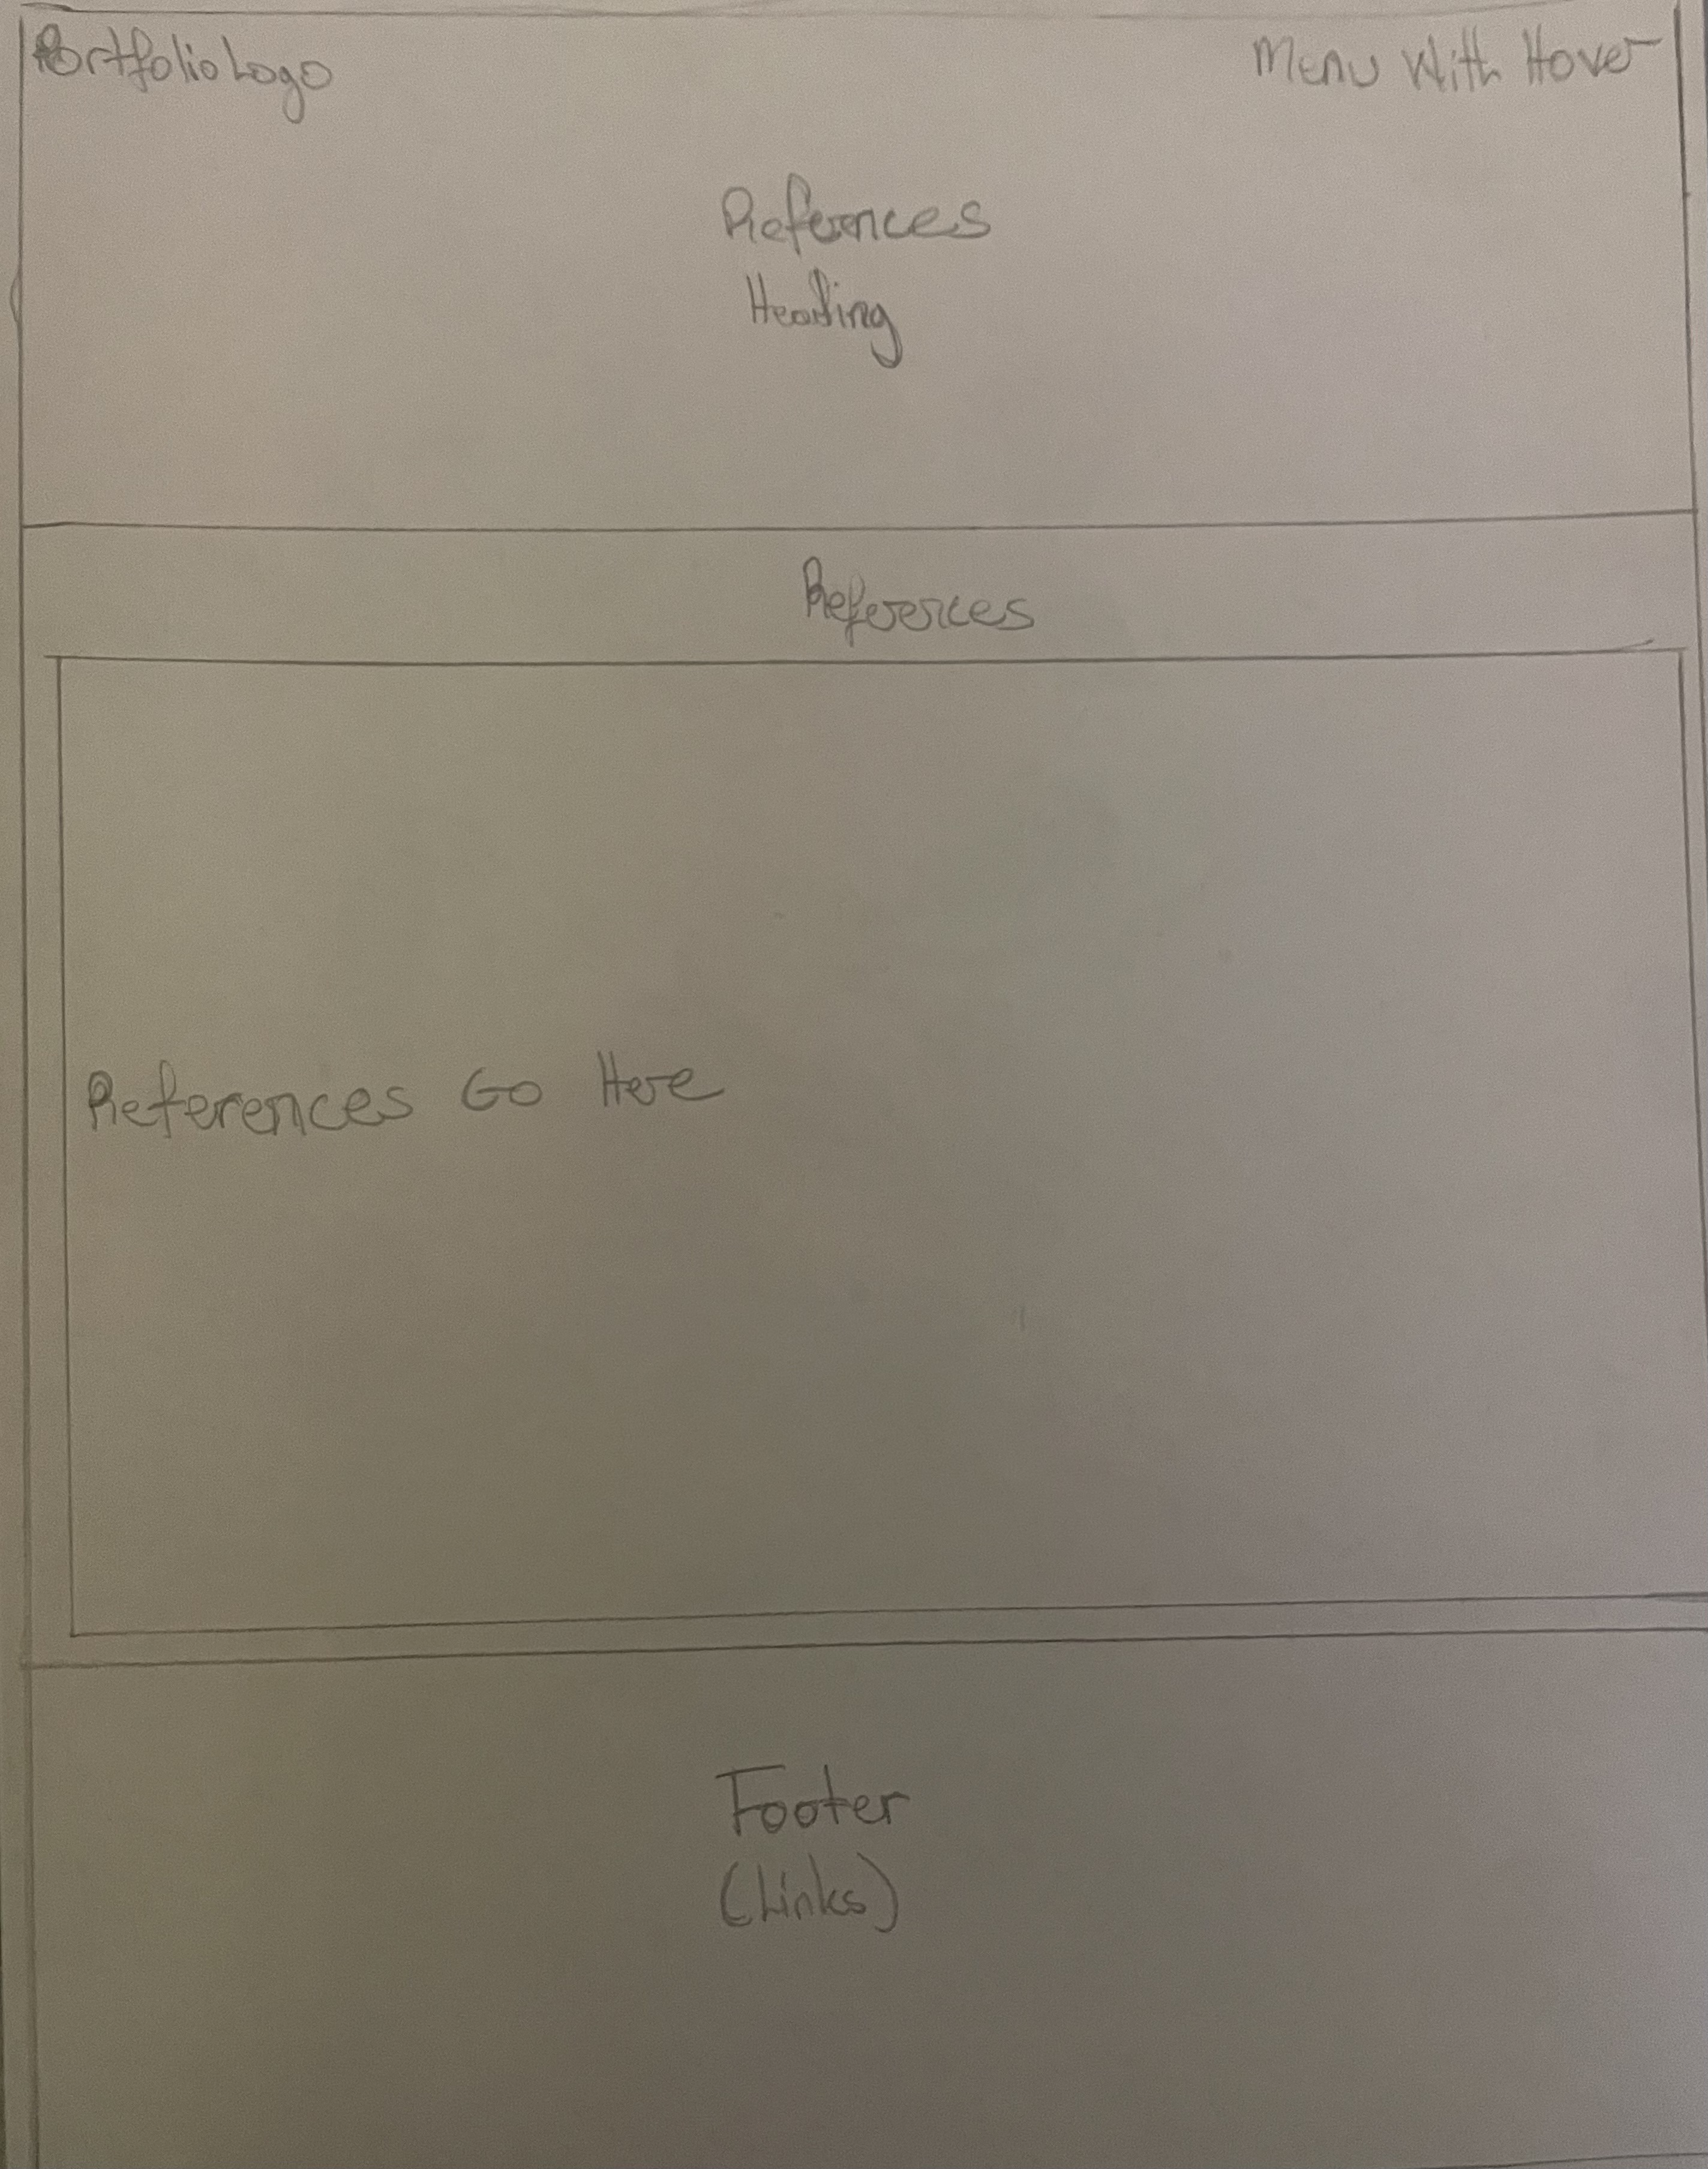 Portfolio Logo
Menu With Hover
References
Heading
References
References Go Here
Footer
(Links)